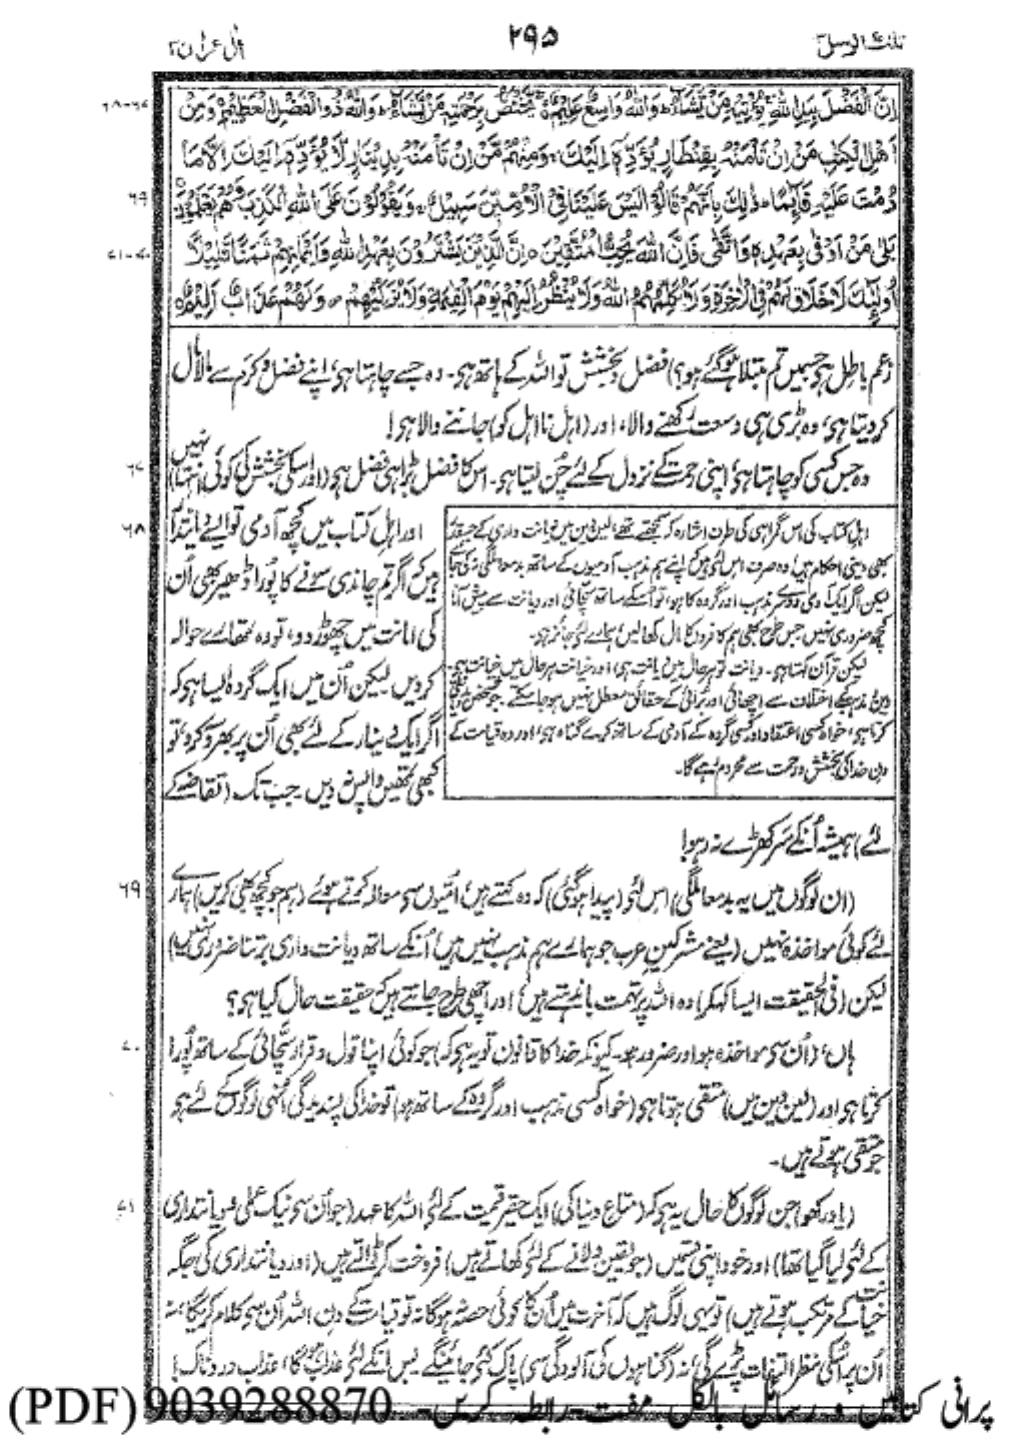 تلك الرسل ۳
۲۹۵
آل عمران ۳
اِنَّ الْفَضْلَ بِيَدِ اللّٰهِ يُؤْتِيْهِ مَنْ يَّشَآءُ وَاللّٰهُ وَاسِعٌ عَلِيْمٌ يَّخْتَصُّ بِرَحْمَتِهٖ مَنْ يَّشَآءُ وَاللّٰهُ ذُو الْفَضْلِ الْعَظِيْمِ وَمِنْ
اَهْلِ الْكِتٰبِ مَنْ اِنْ تَاْمَنْهُ بِقِنْطَارٍ يُّؤَدِّهٖٓ اِلَيْكَ وَمِنْهُمْ مَّنْ اِنْ تَاْمَنْهُ بِدِيْنَارٍ لَّا يُؤَدِّهٖٓ اِلَيْكَ اِلَّا مَا
۶۹
دُمْتَ عَلَيْهِ قَآئِمًا ذٰلِكَ بِاَنَّهُمْ قَالُوْا لَيْسَ عَلَيْنَا فِي الْاُمِّيّٖنَ سَبِيْلٌ وَيَقُوْلُوْنَ عَلَى اللّٰهِ الْكَذِبَ وَهُمْ يَعْلَمُوْنَ
۷۰-۷۱
بَلٰى مَنْ اَوْفٰى بِعَهْدِهٖ وَاتَّقٰى فَاِنَّ اللّٰهَ يُحِبُّ الْمُتَّقِيْنَ اِنَّ الَّذِيْنَ يَشْتَرُوْنَ بِعَهْدِ اللّٰهِ وَاَيْمَانِهِمْ ثَمَنًا قَلِيْلًا
اُولٰٓئِكَ لَا خَلَاقَ لَهُمْ فِي الْاٰخِرَةِ وَلَا يُكَلِّمُهُمُ اللّٰهُ وَلَا يَنْظُرُ اِلَيْهِمْ يَوْمَ الْقِيٰمَةِ وَلَا يُزَكِّيْهِمْ وَلَهُمْ عَذَابٌ اَلِيْمٌ
زعم باطل ہی جسمیں تم مبتلا ہوگئے ہو؟) فضل و بخشش تو اللہ کے ہاتھ ہی۔ وہ جسے چاہتا ہی، اپنے فضل و کرم سے مالا مال
کردیتا ہی، وہ بڑی ہی وسعت رکھنے والا، اور (اہل نا اہل کو) جاننے والا ہی!
۶۷
وہ جس کسی کو چاہتا ہی، اپنی رحمت کے نزول کے لئے چن لیتا ہی۔ اس کا فضل بڑا ہی فضل ہی (اور اسکی بخشش کی کوئی انتہا نہیں)
۶۸
اور اہل کتاب میں کچھ آدمی تو ایسے دیانتدار
ہیں کہ اگر تم چاندی سونے کا پورا ڈھیر بھی اُن
کی امانت میں چھوڑ دو، تو وہ تمھارے حوالہ
کردیں لیکن اُن میں ایک گروہ ایسا ہی کہ
اگر ایک دینار کے لئے بھی اُن پر بھروسہ کرو، تو
کبھی تمھیں واپس نہ دیں جب تک (تقاضے کے
اہل کتاب کی اس گمراہی کی طرف اشارہ کہ سمجھتے تھے، لین دین میں دیانت داری کے جسقدر
بھی دینی احکام ہیں، وہ صرف اس لئے ہیں کہ اپنے ہم مذہب آدمیوں کے ساتھ بد معاملگی نہ کی جائے
لیکن اگر ایک آدمی دوسرے مذہب اور گروہ کا ہو، تو اُسکے ساتھ سچائی اور دیانت سے پیش آنا
کچھ ضروری نہیں جس طرح بھی ہم کافروں کا مال کھا لیں، ہمارے لئے جائز ہو۔
لیکن قرآن کہتا ہی۔ دیانت تو ہر حال میں دیانت ہی، اور خیانت ہر حال میں خیانت ہی۔
دین و مذہب کے اختلاف سے اچھائی اور برائی کے حقائق معطل نہیں ہو جا سکتے۔ جو شخص بددیانتی
کرتا ہو، خواہ کسی اعتقاد اور کسی گروہ کے آدمی کے ساتھ کرے گناہ ہی، اور وہ قیامت کے
دن خدا کی بخشش و رحمت سے محروم رہے گا۔
لئے) ہمیشہ اُنکے سر کھڑے نہ رہو!
۶۹
(ان لوگوں میں یہ بد معاملگی) اس لئے (پیدا ہوگئی) کہ وہ کہتے ہیں، اُمیّوں سی معاملہ کرتے ہوئے (ہم جو کچھ بھی کریں) ہمارے
لئے کوئی مواخذہ نہیں (یعنے مشرکین عرب جو ہمارے ہم مذہب نہیں ہیں، اُنکے ساتھ دیانت داری برتنا ضروری نہیں)
لیکن (فی الحقیقت، ایسا کہکر) وہ اللہ پر تہمت باندھتے ہیں، اور اچھی طرح جانتے ہیں کہ حقیقت حال کیا ہی؟
۷۰
ہاں، (اُن سے مواخذہ ہو اور ضرور ہو۔ کیونکہ خدا کا قانون تو یہ ہی کہ) جو کوئی اپنا قول و قرار سچائی کے ساتھ پورا
کرتا ہو اور (لین دین میں) متقی ہوتا ہو (خواہ کسی مذہب اور گروہ کے ساتھ ہو) تو خدا کی پسندیدگی اُنہی لوگوں کے لئے ہو
جو متقی ہوتے ہیں۔
۷۱
(یاد رکھو) جن لوگوں کا حال یہ ہی کہ (متاع دنیا کی) ایک حقیر قیمت کے لئے اللہ کا عہد (جو اُن سی نیک عملی و دیانتداری
کے لئے لیا گیا تھا) اور خود اپنی قسمیں (جو یقین دلانے کے لئے کھاتے ہیں) فروخت کرڈالتے ہیں (اور دیانتداری کی جگہ
خیانت کے مرتکب ہوتے ہیں) تو یہی لوگ ہیں کہ آخرت میں اُن کا کوئی حصہ نہ ہوگا نہ تو قیامت کے دن اللہ اُن سی کلام کریگا، نہ
اُن پر اسکی نظر التفات پڑے گی، نہ (گناہوں کی آلودگی سی) پاک کئے جائینگے۔ پس انکے لئے عذاب ہوگا، عذاب دردناک!
پرانی کتابیں و رسائل بالکل مفت۔ رابطہ کریں۔ 9039288870 (PDF)